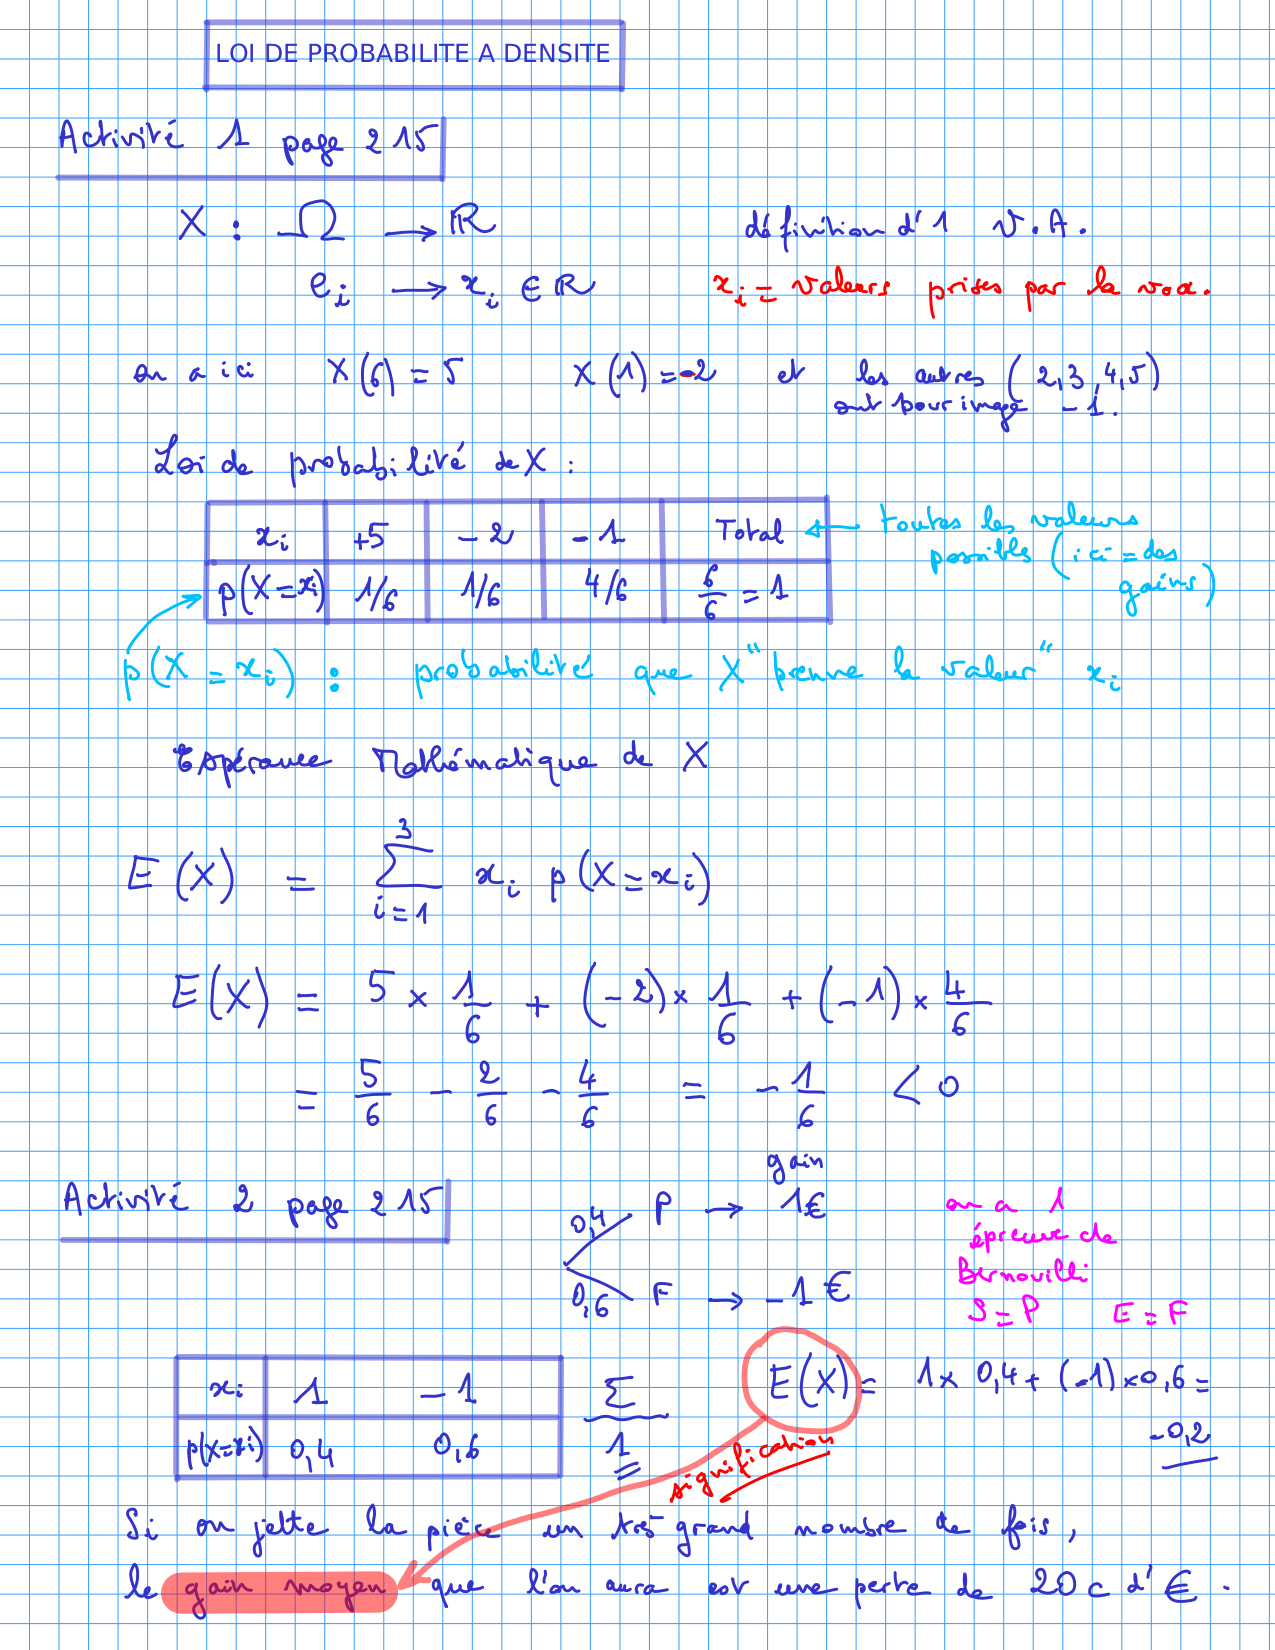 LOI DE PROBABILITE A DENSITE
Activité 1 page 215
X : Ω → ℝ définition d'1 V.A.
e_i → x_i ∈ ℝ x_i = valeurs prises par la v.a.
on a ici X(6) = 5 X(1) = -2 et les autres (2,3,4,5)
ont pour image -1.
Loi de probabilité de X :
x_i +5 -2 -1 Total ← toutes les valeurs
possibles (ici = des
gains)
p(X=x_i) 1/6 1/6 4/6 6/6 = 1
p(X = x_i) : probabilité que X "prenne la valeur" x_i
Espérance Mathématique de X
E(X) = ∑_{i=1}^{3} x_i p(X=x_i)
E(X) = 5 × 1/6 + (-2) × 1/6 + (-1) × 4/6
= 5/6 - 2/6 - 4/6 = -1/6 < 0
gain
Activité 2 page 215
0,4 P → 1€
0,6 F → -1€
on a 1
épreuve de
Bernouilli
S = P E = F
x_i 1 -1 ∑
p(X=x_i) 0,4 0,6 1
E(X) = 1 × 0,4 + (-1) × 0,6 =
-0,2
signification
Si on jette la pièce un très grand nombre de fois,
le gain moyen que l'on aura est une perte de 20 c d'€.